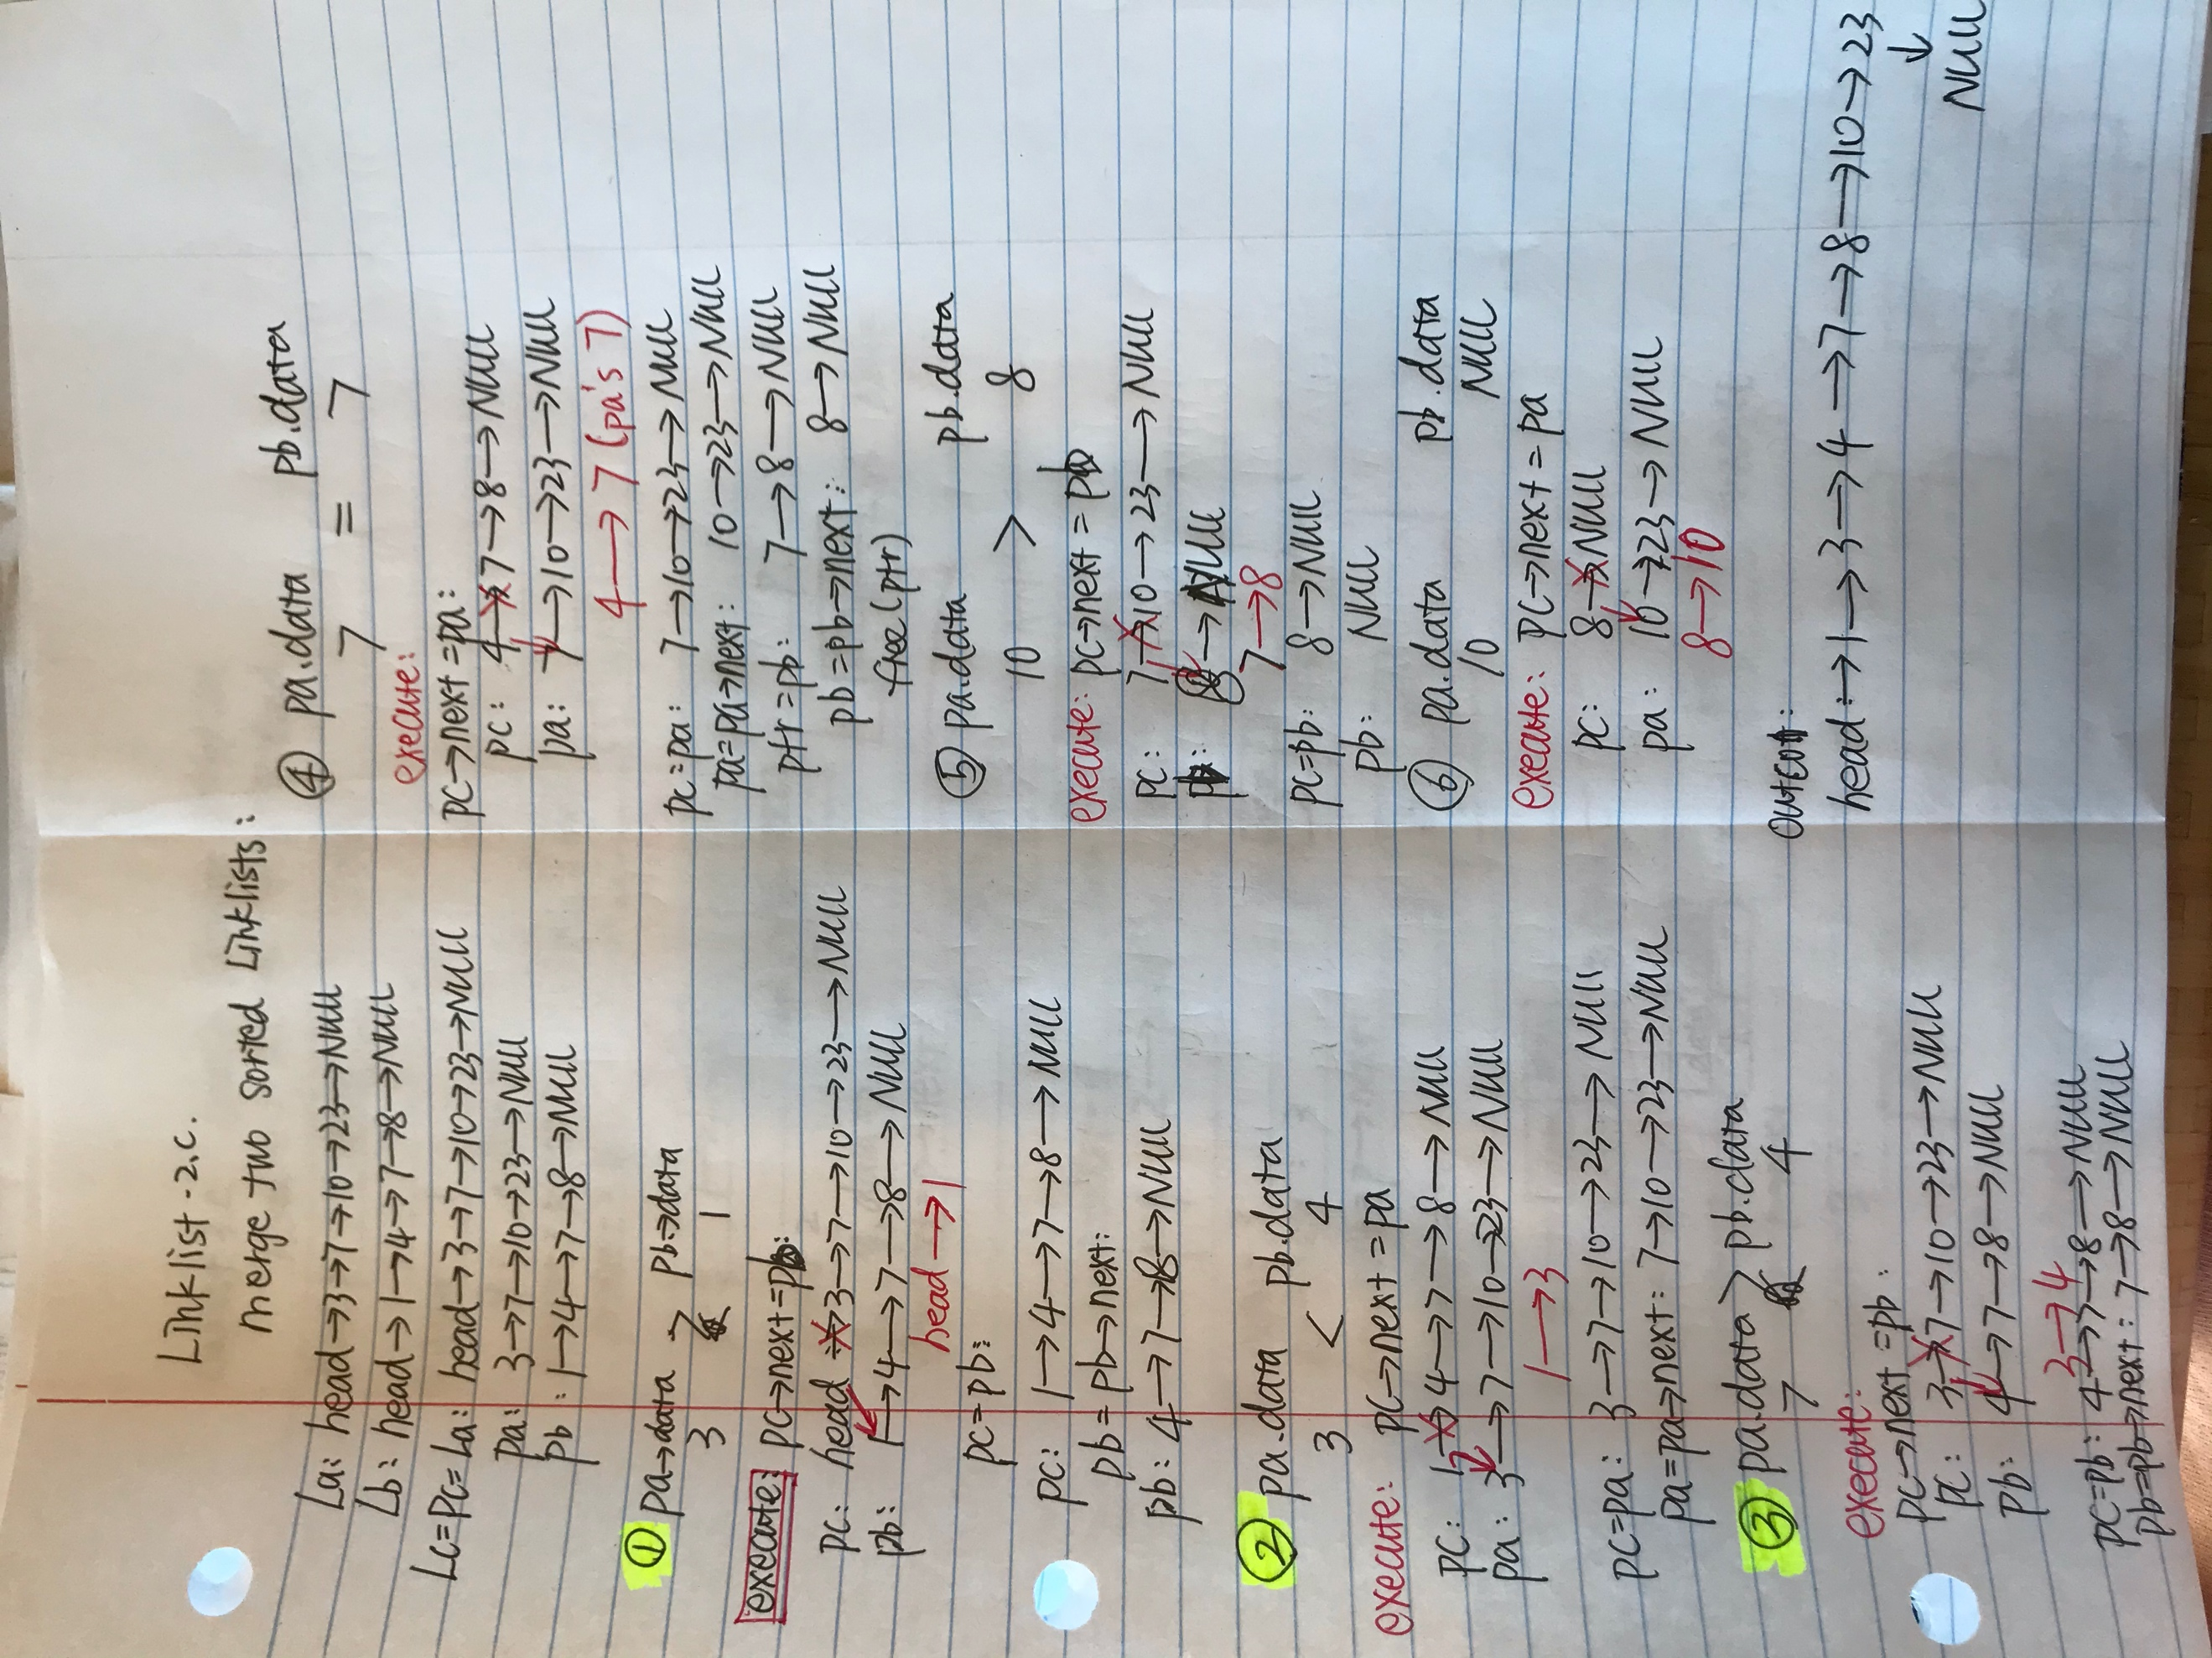 Linklist-2.c.
merge two sorted Linklists:
La: head→3→7→10→23→Null
Lb: head→1→4→7→8→Null
Lc=pc=La: head→3→7→10→23→Null
pa: 3→7→10→23→Null
pb: 1→4→7→8→Null
① pa→data > pb→data
3 1
execute: pc→next=pb:
pc: head→3→7→10→23→Null
pb: 1→4→7→8→Null
head→1
pc=pb:
pc: 1→4→7→8→Null
pb=pb→next:
pb: 4→7→8→Null
② pa.data pb.data
3 < 4
execute: pc→next=pa
pc: 1→4→7→8→Null
pa: 3→7→10→23→Null
1→3
pc=pa: 3→7→10→23→Null
pa=pa→next: 7→10→23→Null
③ pa.data > pb.data
7 4
execute:
pc→next=pb:
pc: 3→7→10→23→Null
pb: 4→7→8→Null
3→4
pc=pb: 4→7→8→Null
pb=pb→next: 7→8→Null
④ pa.data pb.data
7 = 7
execute:
pc→next=pa:
pc: 4→7→8→Null
pa: 7→10→23→Null
4→7 (pa's 7)
pc=pa: 7→10→23→Null
pa=pa→next: 10→23→Null
ptr=pb: 7→8→Null
pb=pb→next: 8→Null
free(ptr)
⑤ pa.data pb.data
10 > 8
execute: pc→next=pb
pc: 7→10→23→Null
pb: 8→Null
7→8
pc=pb: 8→Null
pb: Null
⑥ pa.data pb.data
10 Null
execute: pc→next=pa
pc: 8→Null
pa: 10→23→Null
8→10
head:→1→3→4→7→8→10→23
↓
Null